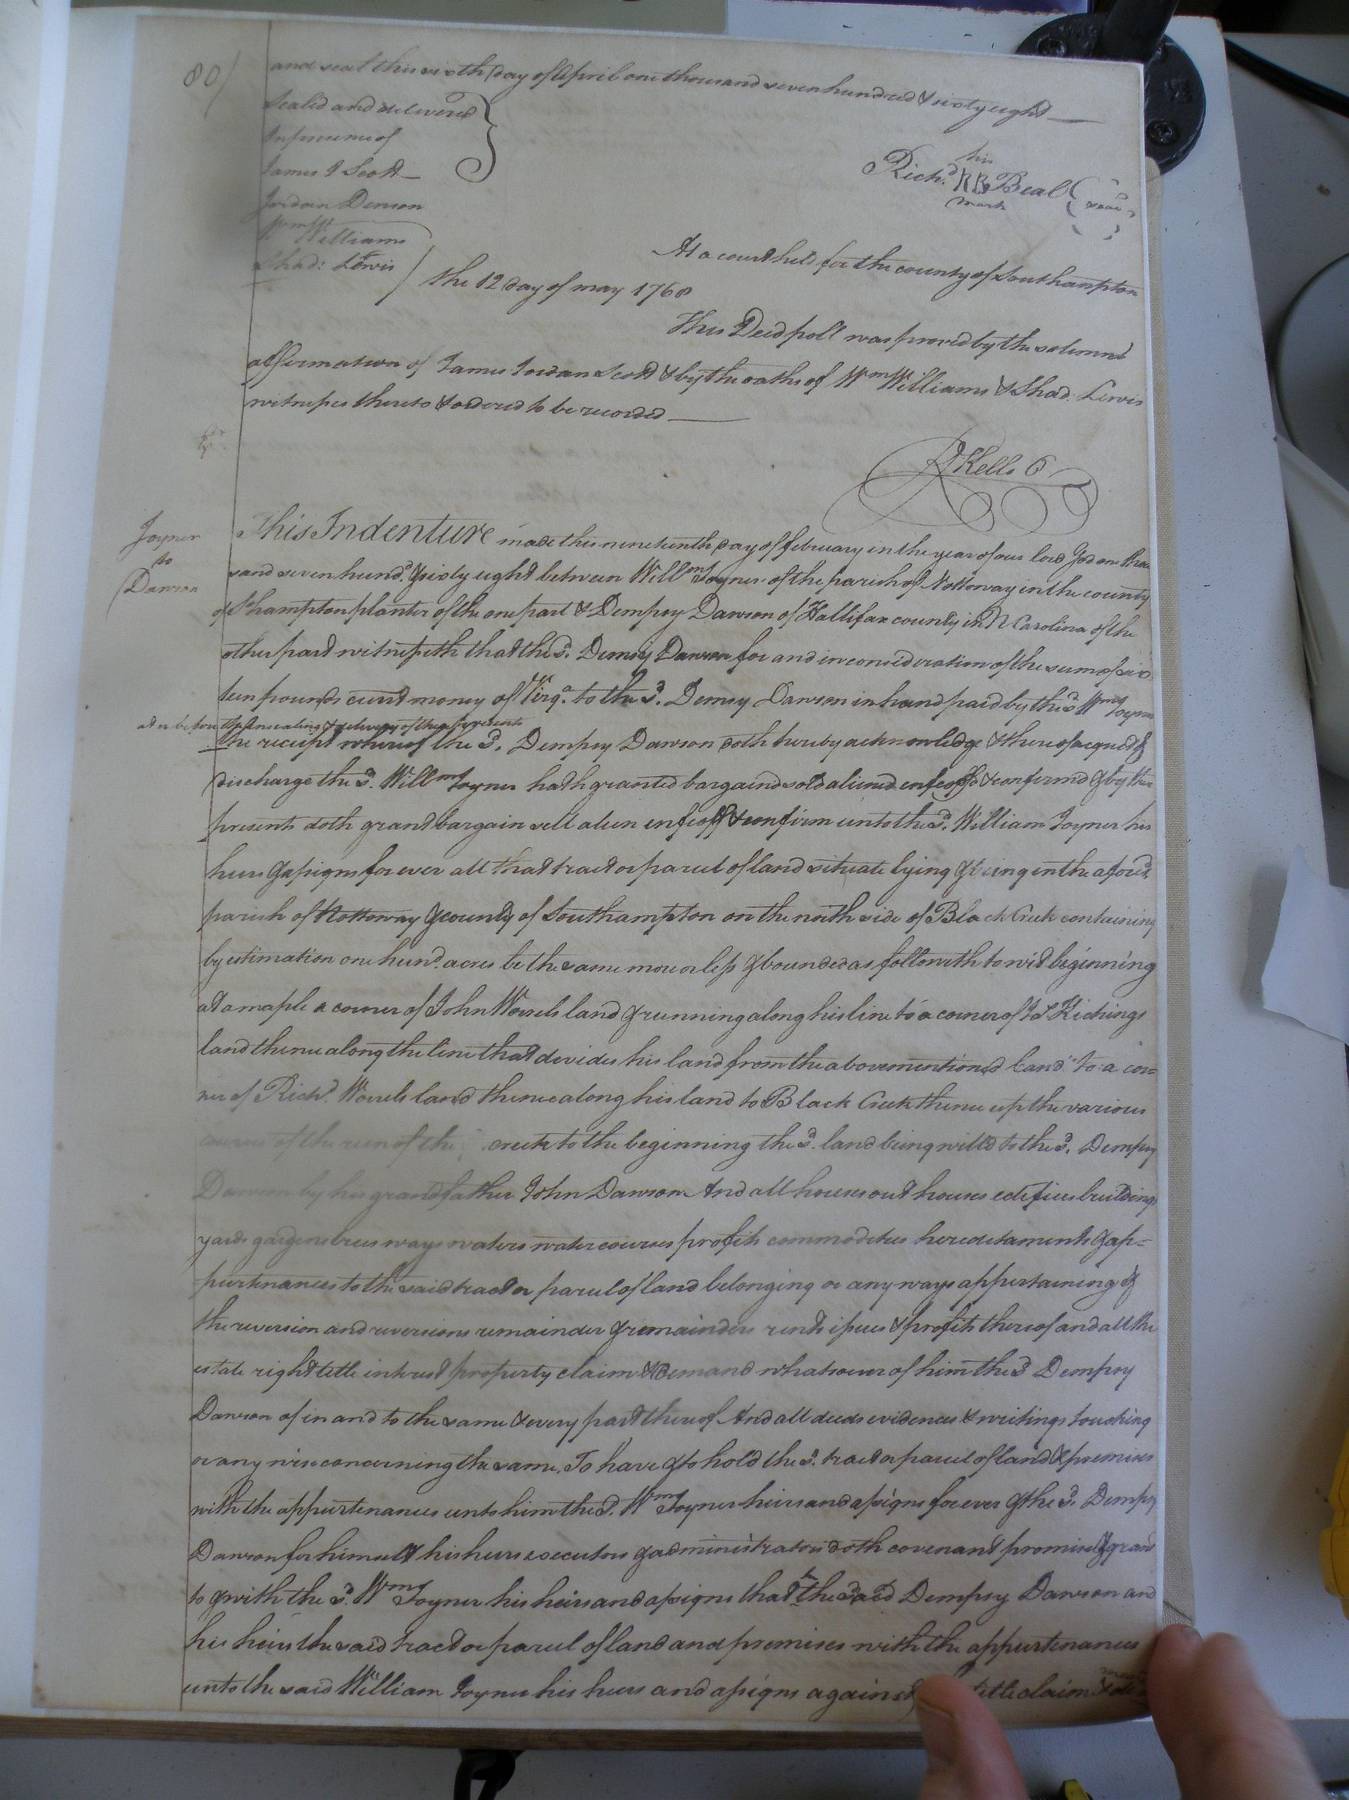 80/
and seal this sixth day of April one thousand seven hundred & sixty eight
Sealed and delivered
In presence of
James J Scott
Jordan Denson
Wm Williams
Shad: Lewis
his
Richd. RB Beal (seal)
mark
At a court held for the county of Southampton
the 12 day of may 1768
This Deed poll was proved by the solemn
affirmation of James Jordan Scott & by the oaths of Wm Williams & Shad: Lewis
witnesses thereto & ordered to be recorded
R Kello C
Joyner
to
Dawson
This Indenture made this nineteenth day of february in the year of our lord god one thou
sand seven hund. & sixty eight between Willm Joyner of the parish of Nottoway in the county
of Shampton planter of the one part & Dempsy Dawson of Hallifax county in N Carolina of the
other part witnesseth that the sd. Demsy Dawson for and in consideration of the sum of six
teen pounds curt money of Virga. to the sd. Demsy Dawson in hand paid by the sd Wm Joyner
at or before the ensealing & delivery of these presents
the receipt whereof the sd. Dempsy Dawson doth hereby acknowledge & thereof acquit &
discharge the sd. Willm Joyner hath granted bargaind sold aliened enfeoffd & confirmd & by these
presents doth grant bargain sell alien enfeoff & confirm unto the sd. William Joyner his
heirs & assigns for ever all that tract or parcel of land situate lying & being in the aforsd.
parish of Nottoway & county of Southampton on the north side of Black Creek containing
by estimation one hund. acres be the same more or less & bounded as followith to wit beginning
at a maple a corner of John Worrels land & running along his line to a corner of Js Kichings
land thence along the line that devides his land from the abovementioned land to a cor=
ner of Richd. Worrels land thence along his land to Black Creek thence up the various
courses of the run of the creek to the beginning the sd. land being willd to the sd. Dempsy
Dawson by his grandfather John Dawson And all houses out houses edifices buildings
yards gardens trees ways waters water courses profits commodities hereditaments & ap=
purtenances to the said tract or parcel of land belonging or any ways appertaining &
the reversion and reversions remainder & remainders rents issues & profits thereof and all the
estate right title interest property claim & demand whatsoever of him the sd Dempsy
Dawson of in and to the same & every part thereof And all deeds evidences & writings touching
or any wise concerning the same, To have & to hold the sd. tract or parcel of land & premises
with the appurtenances unto him the sd. Wm Joyner heirs and assigns for ever & the sd. Dempsy
Dawson for himself his heirs executors & administrators doth covenant promise & grant
to & with the sd. Wm Joyner his heirs and assigns that the said Dempsy Dawson and
his heirs the said tract or parcel of land and premises with the appurtenances
unto the said William Joyner his heirs and assigns against title claim &